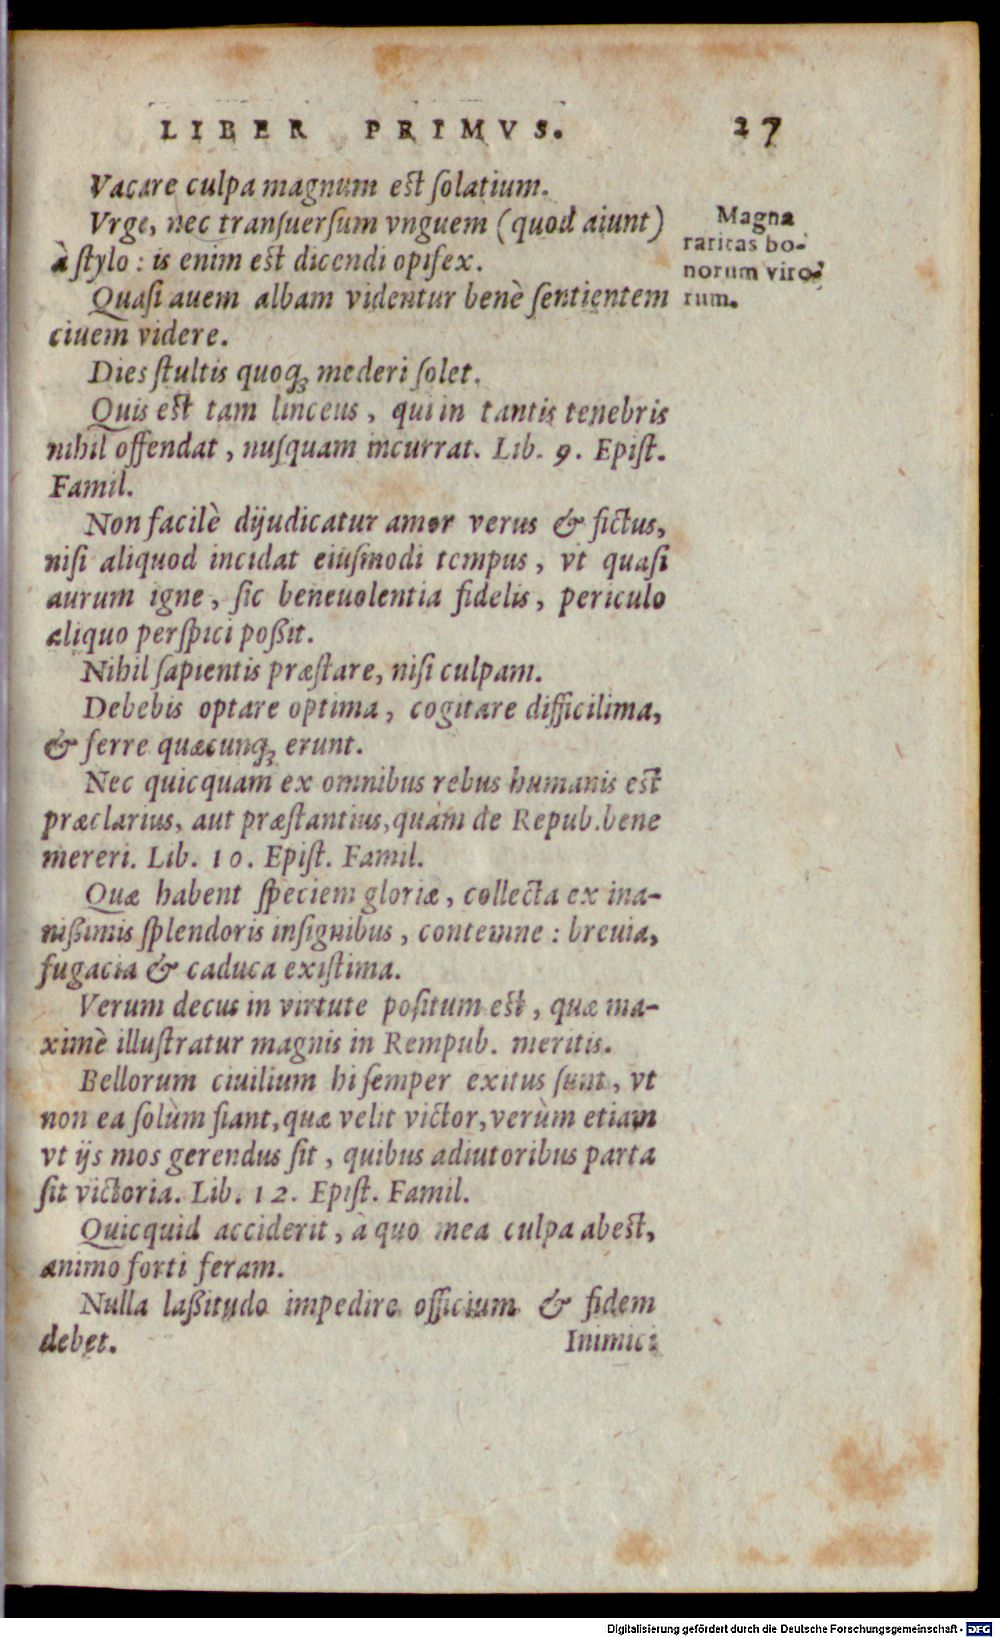 LIBER PRIMVS. 27
Vacare culpa magnum est ſolatium.
Vrge, nec tranſuerſum vnguem (quod aiunt)
à ſtylo : is enim est dicendi opifex.
Magna
raritas bo-
norum viro-
rum.
Quaſi auem albam videntur benè ſentientem
ciuem videre.
Dies ſtultis quoq; mederi ſolet.
Quis est tam linceus, qui in tantis tenebris
nihil offendat, nuſquam incurrat. Lib. 9. Epiſt.
Famil.
Non facilè dijudicatur amor verus & fictus,
niſi aliquod incidat eiuſmodi tempus, vt quaſi
aurum igne, ſic beneuolentia fidelis, periculo
aliquo perſpici poßit.
Nihil ſapientis præſtare, niſi culpam.
Debebis optare optima, cogitare difficilima,
& ferre quæcunq; erunt.
Nec quicquam ex omnibus rebus humanis est
præclarius, aut præſtantius, quàm de Repub. bene
mereri. Lib. 10. Epiſt. Famil.
Quæ habent ſpeciem gloriæ, collecta ex ina-
nißimis ſplendoris inſignibus, contemne : breuia,
fugacia & caduca exiſtima.
Verum decus in virtute poſitum est, quæ ma-
ximè illuſtratur magnis in Rempub. meritis.
Bellorum ciuilium hi ſemper exitus ſunt, vt
non ea ſolùm fiant, quæ velit victor, verùm etiam
vt ijs mos gerendus ſit, quibus adiutoribus parta
ſit victoria. Lib. 12. Epiſt. Famil.
Quicquid acciderit, à quo mea culpa abest,
animo forti feram.
Nulla laßitudo impedire officium & fidem
debet. Inimici
Digitalisierung gefördert durch die Deutsche Forschungsgemeinschaft - DFG